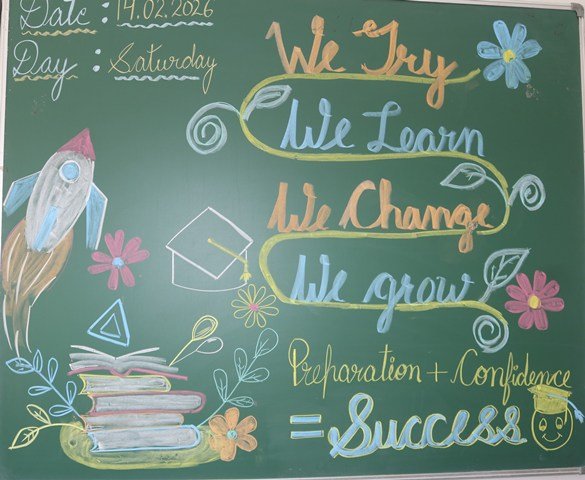 Date : 14.02.2026
Day : Saturday
We Try
We Learn
We Change
We grow
Preparation + Confidence
= Success